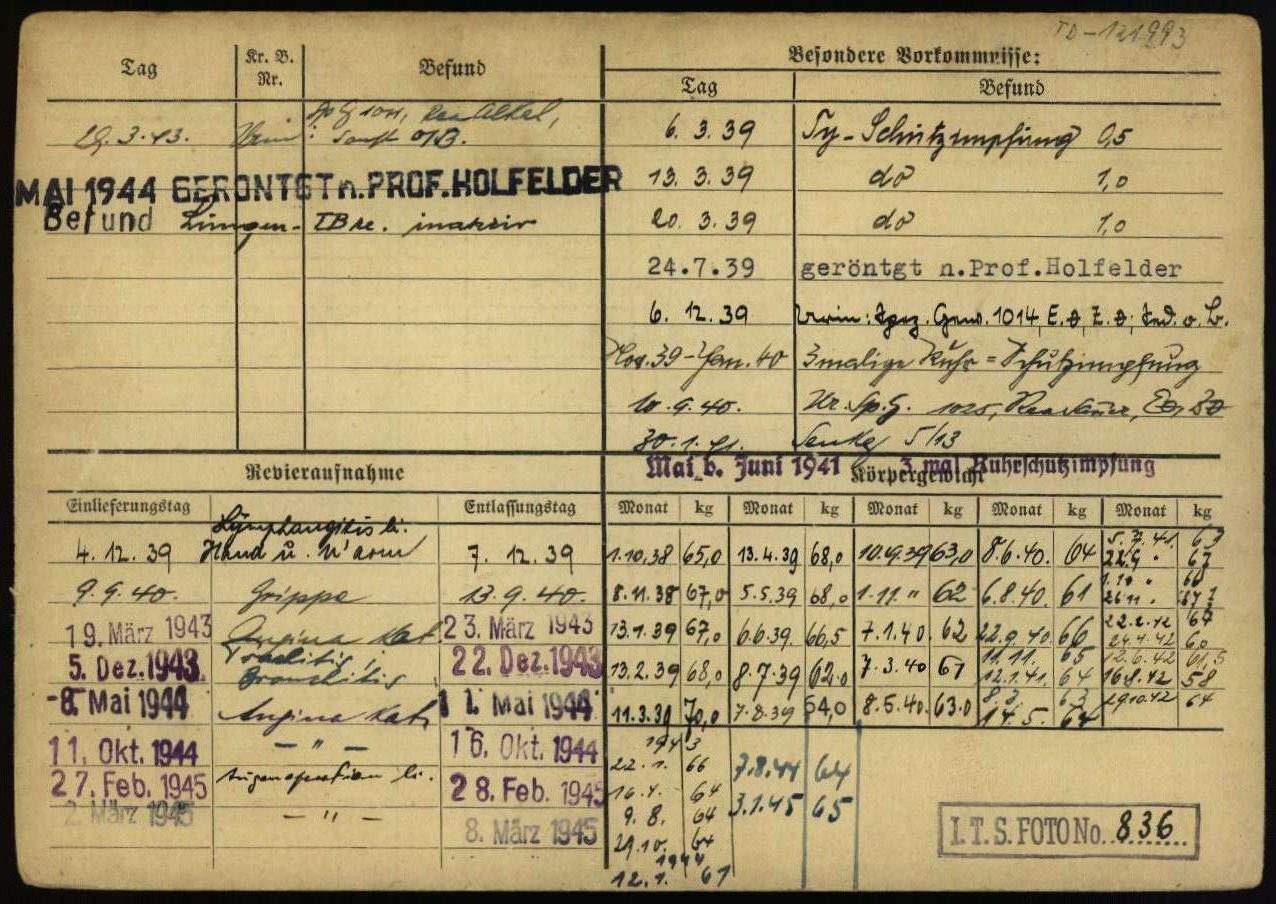 TD-121993
Tag
Kr. B. Nr.
Befund
29.3.43.
MAI 1944 GERÖNTGT n. PROF. HOLFELDER
Befund Lungen- TBc. inaktiv
Besondere Vorkommnisse:
Tag Befund
6. 3. 39 Ty-Schutzimpfung 0,5
13. 3. 39 do 1,0
20. 3. 39 do 1,0
24.7.39 geröntgt n.Prof.Holfelder
6. 12. 39 Urin: Spez. Gew. 1014, E. Z. Sed. o. B.
Nov. 39 - Jan. 40 3malige Ruhr = Schutzimpfung
10.9.40. Ur. Sp.G. 1025,
30.1.41. Senkg 5/13
Mai b. Juni 1941 3 mal Ruhrschutzimpfung
Revieraufnahme
Einlieferungstag Entlassungstag
4. 12. 39 Lymphangitis li. Hand u. U'arm 7. 12. 39
9.9.40. Grippe 13.9.40.
19. März 1943 Angina Kat. 23. März 1943
5. Dez. 1943 Bronchitis 22. Dez. 1943
-8. Mai 1944 Angina Kat. 11. Mai 1944
11. Okt. 1944 - " - 16. Okt. 1944
27. Feb. 1945 Augenoperation li. 28. Feb. 1945
2. März 1945 - " - 8. März 1945
Körpergewicht
Monat kg Monat kg Monat kg Monat kg Monat kg
1.10.38 65,0 13.4.39 68,0 10.9.39 63,0 8.6.40. 64 5.7.41. 63
22.9 " 67
8.11.38 67,0 5.5.39 68,0 1.11. " 62 6.8.40. 61 1.10 " 66
26.11 "
13.1.39 67,0 6.6.39. 66,5 7.1.40. 62 22.9.40. 66 22.2.42 64
24.4.42 60
13.2.39 68,0 8.7.39 62,0 7.3.40 61 11.11. 65 12.6.42 61,5
12.1.41. 64 16.8.42 58
11.3.39 70,0 7.8.39 64,0 8.5.40. 63,0 8.3. 63 29.10.42 64
14.5. 64
1943
22.1. 66 7.8.44 64
16.4. 64 3.1.45 65
9.8. 64
29.10. 64
1944
12.1. 61
I.T.S. FOTO No. 836